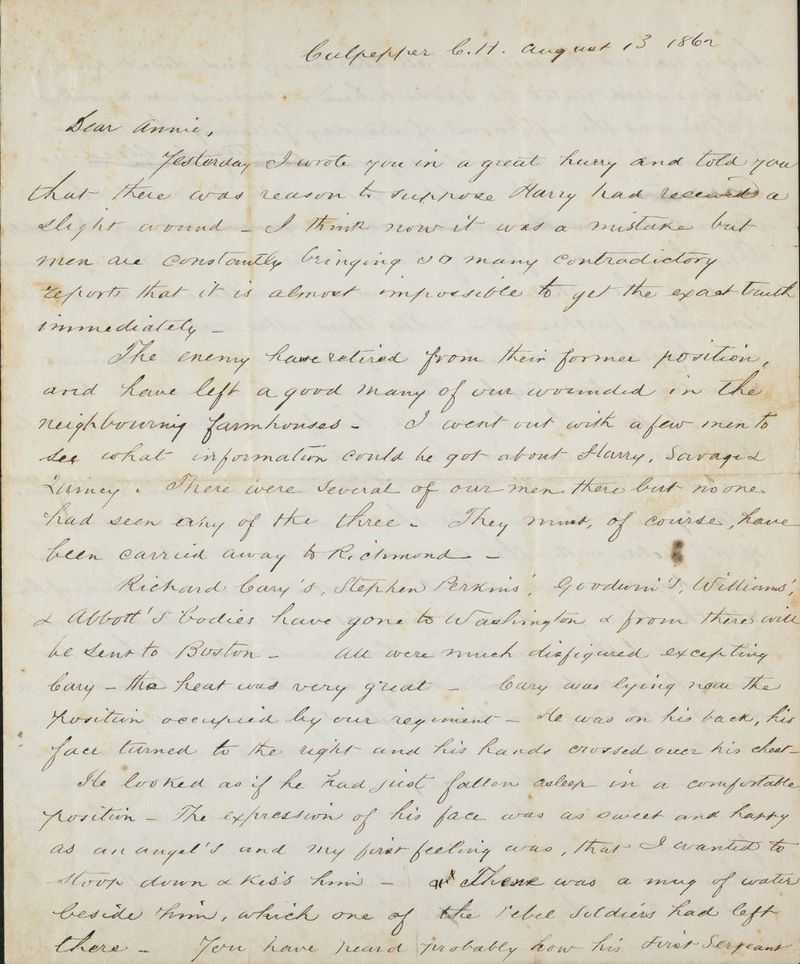 Culpepper C.H. August 13 1862
Dear Annie,
Yesterday I wrote you in a great hurry and told you
that there was reason to suppose Harry had received a
slight wound - I think now it was a mistake but
men are constantly bringing so many contradictory
reports that it is almost impossible to get the exact truth
immediately -
The enemy have retired from their former position,
and have left a good many of our wounded in the
neighbouring farmhouses - I went out with a few men to
see what information could be got about Harry, Savage &
Quincy. There were several of our men there but no one
had seen any of the three - They must, of course, have
been carried away to Richmond -
Richard Cary's, Stephen Perkins', Goodwin's, Williams',
& Abbott's bodies have gone to Washington & from there will
be sent to Boston - All were much disfigured excepting
Cary - the heat was very great - Cary was lying near the
position occupied by our regiment - He was on his back, his
face turned to the right and his hands crossed over his chest -
He looked as if he had just fallen asleep in a comfortable
position - The expression of his face was as sweet and happy
as an angel's and my first feeling was, that I wanted to
stoop down & kiss him - There was a mug of water
beside him, which one of the rebel soldiers had left
there - You have heard probably how his First Sergeant